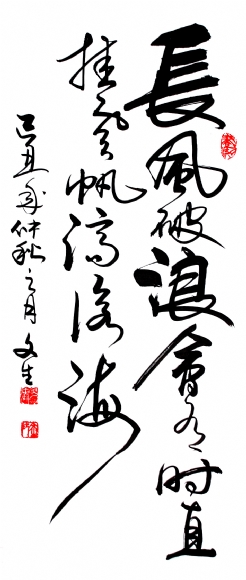 長風破浪會有时直
挂雲帆濟滄海
己丑年仲秋之月文生